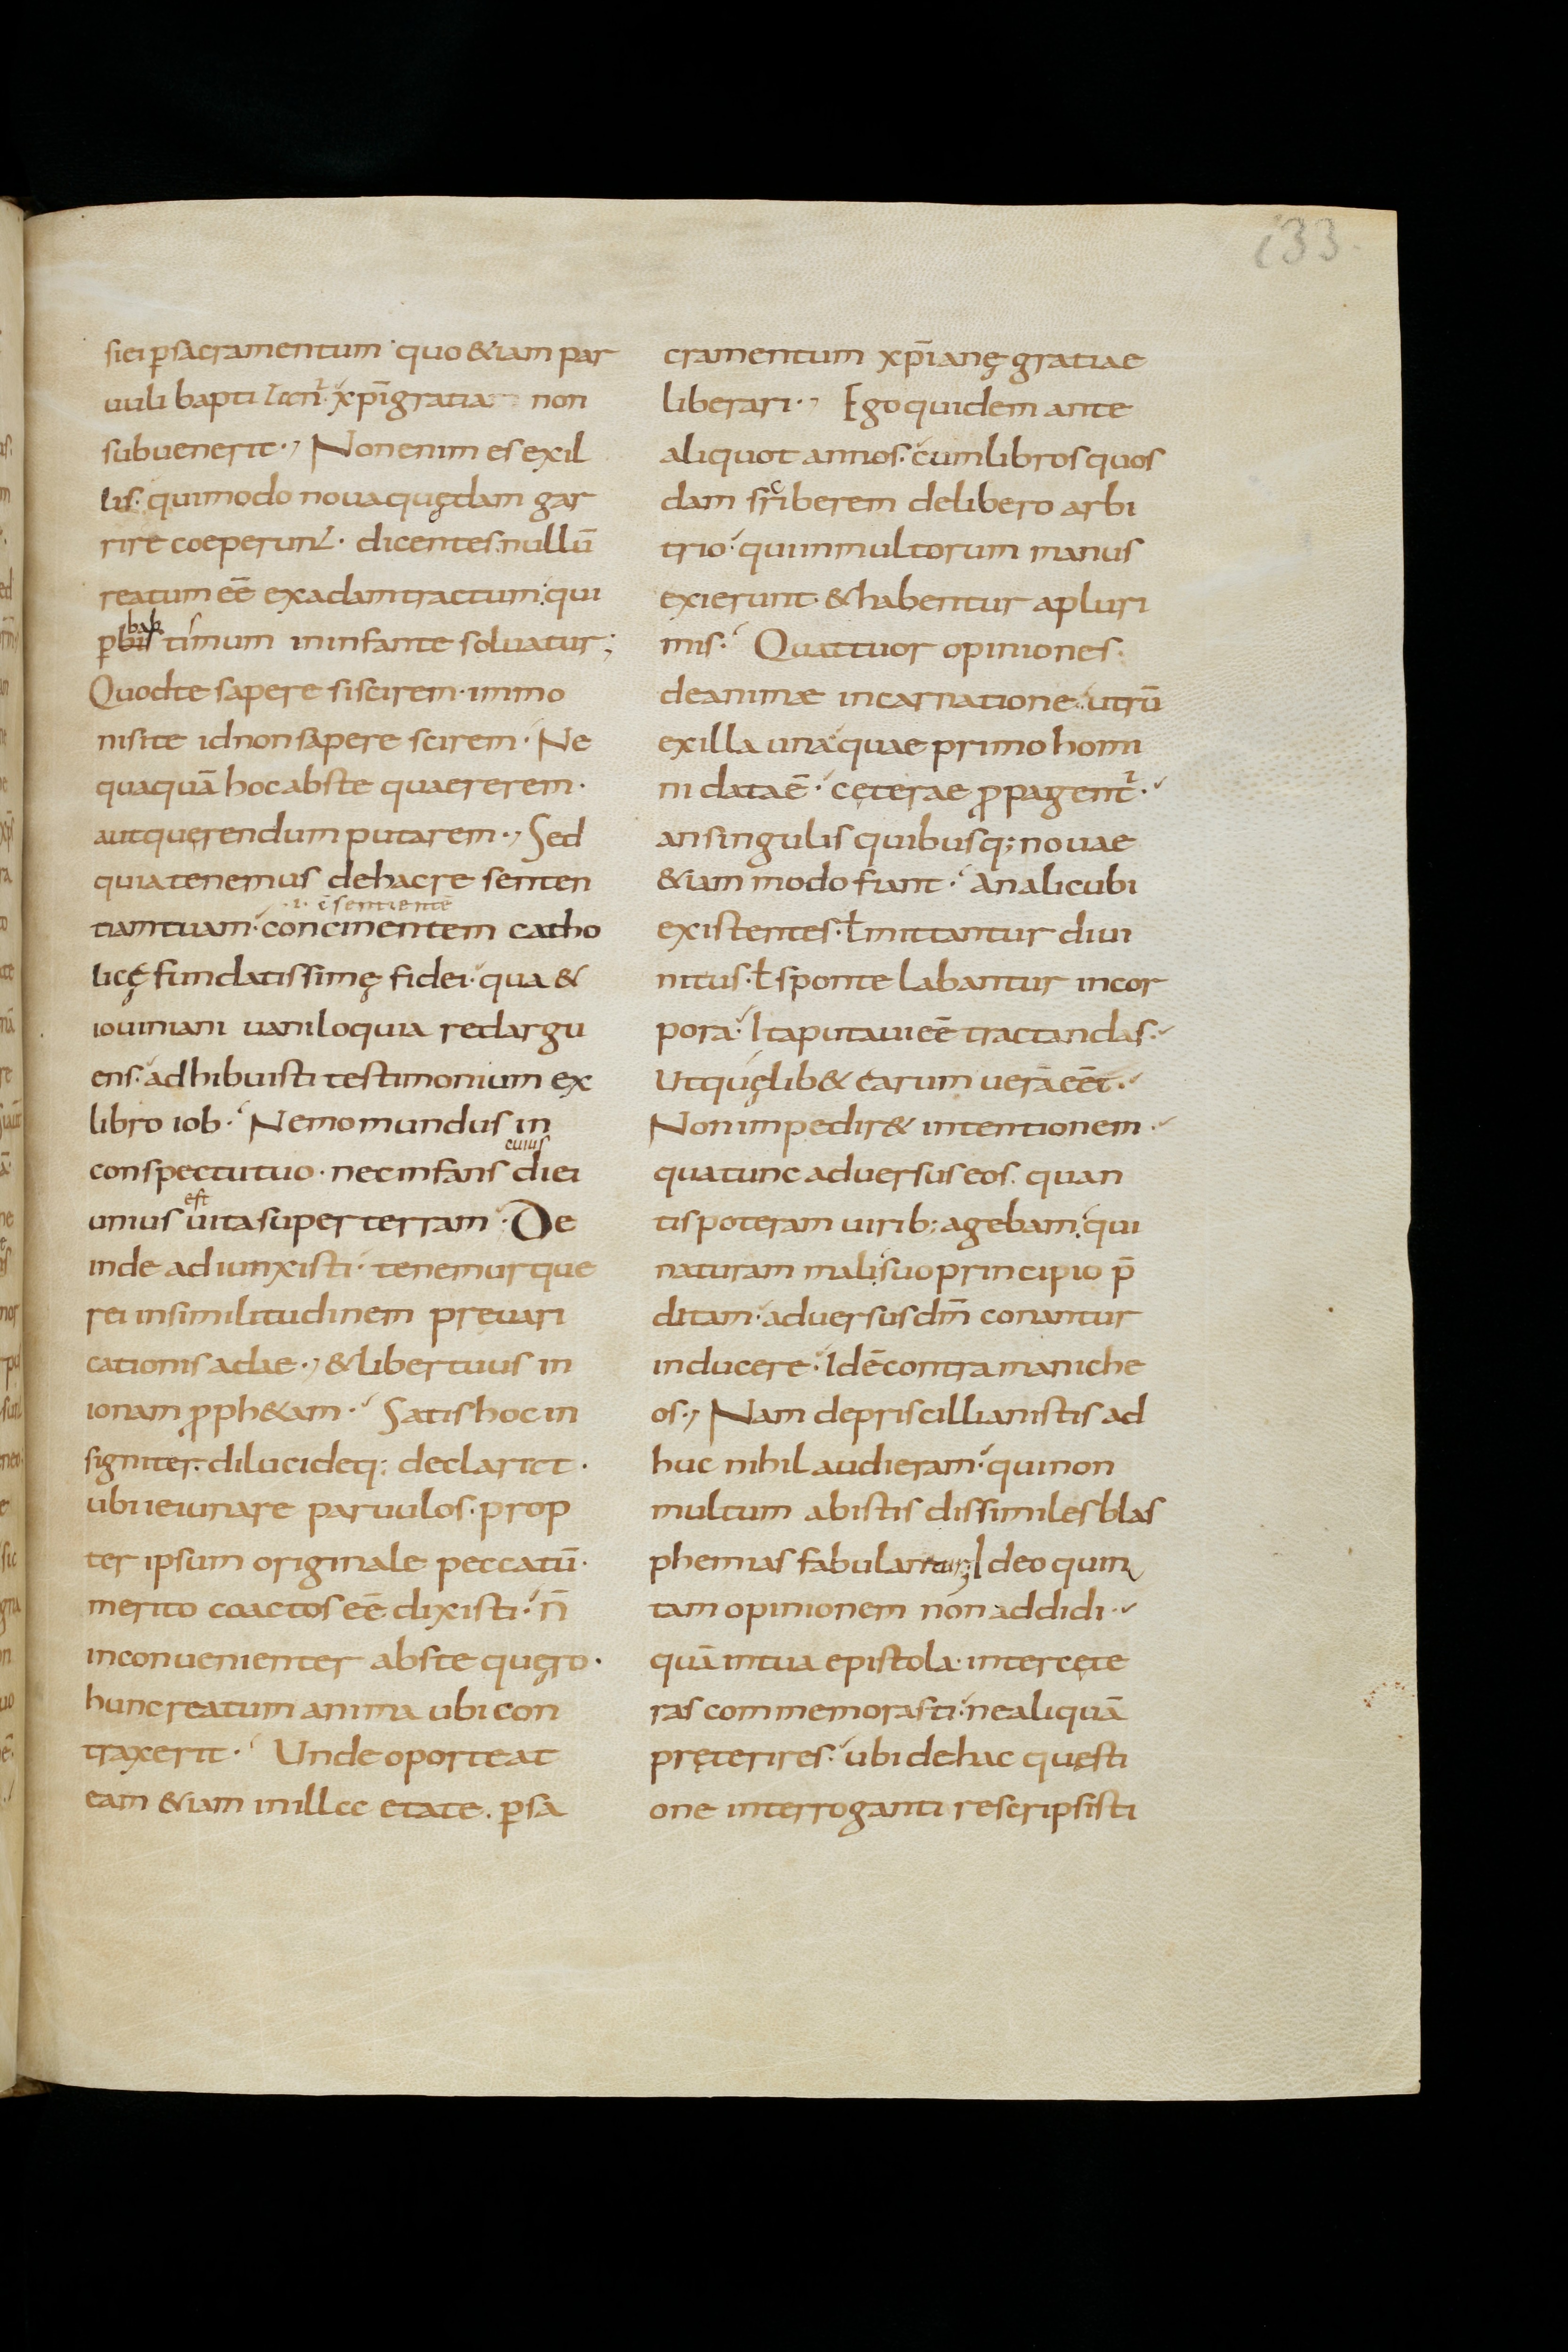 133
si ei ꝑsacramentum quo &iam par
uuli baptizent᷑ xp̄i gratia non
subuenerit·, Non enim es ex il
lis· qui modo noua quędam gar
rire coeperunt· dicentes· nullū
reatum eē ex adam tractum· qui
bap
ꝑ bis tismum in infante soluatur;
Quod te sapere si scirem· immo
nisi te id non sapere scirem· Ne
quaquā hoc abs te quaererem·
aut querendum putarem·, Sed
quia tenemus de hac re senten
·i· c̄sentientē
tiam tuam· concinentem catho
licę fundatissimę fidei· qua &
iouiniani uaniloquia redargu
ens· adhibuisti testimonium ex
libro iob· Nemo mundus in
cuius
conspectu tuo· nec infans diei
est
unius uita super terram· De
inde adiunxisti· tenemurque
rei in similitudinem preuari
cationis adae·, & liber tuus in
ionam ꝓph&am· Satis hoc in
signiter· dilucideq; declarat·
ubi ieiunare paruulos· prop
ter ipsum originale peccatū·
merito coactos eē dixisti· n̄
inconuenienter abs te quęro·
hunc reatum anima ubi con
traxerit· Unde oporteat
eam &iam in illa etate· ꝑ sa
cramentum xp̄ianę gratiae
liberari·, Ego quidem ante
aliquot annos· cum libros quos
c
dam sriberem de libero arbi
trio· qui in multorum manus
exierunt· & habentur a pluri
mis· Quattuor opiniones·
de animae incarnatione· utrū
ex illa una quae primo homi
ni data ē· ceterae ꝓpagent᷑·
an singulis quibusq; nouae
&iam modo fiant· An alicubi
existentes· ł mittantur diui
nitus· ł sponte labantur in cor
pora· Ita putaui eē tractandas·
Ut quęlib& earum uera eēt·
Non impedir& intentionem·
qua tunc aduersus eos· quan
tis poteram uirib; agebam· qui
naturam mali suo principio p̄
ditam· aduersus dm̄ conantur
inducere· Id ē contra maniche
os·, Nam de priscillianistis ad
huc nihil audieram· qui non
multum ab istis dissimiles blas
phemias fabulantur; Ideo quin
tam opinionem non addidi·
quā in tua epistola· inter cęte
ras commemorasti· ne aliquā
pręterires· ubi de hac questi
one interroganti rescripsisti